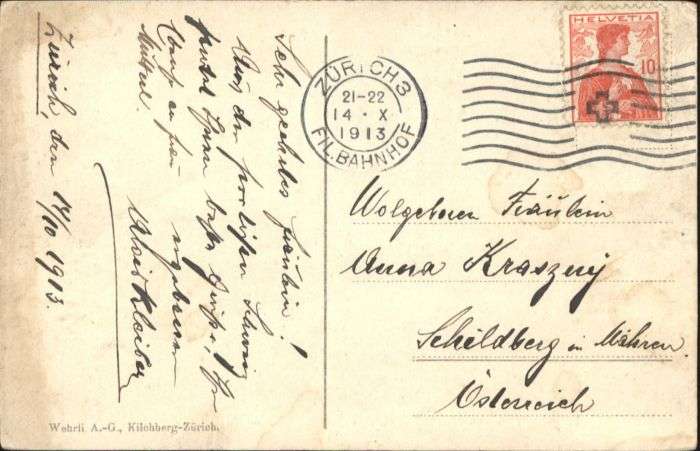 Zürich, den 14/10 1913.
Sehr geehrtes Fräulein!
Aus der herrlichen Schweiz
sendet Ihnen beste Grüsse, Ihr
ergebener
Alois Kleiber
ZÜRICH 3
21-22
14 · X
1913
FIL. BAHNHOF
HELVETIA
10
Wolgeboren Fräulein
Anna Kraszny
Schildberg in Mähren
Österreich
Wehrli A.-G., Kilchberg-Zürich.